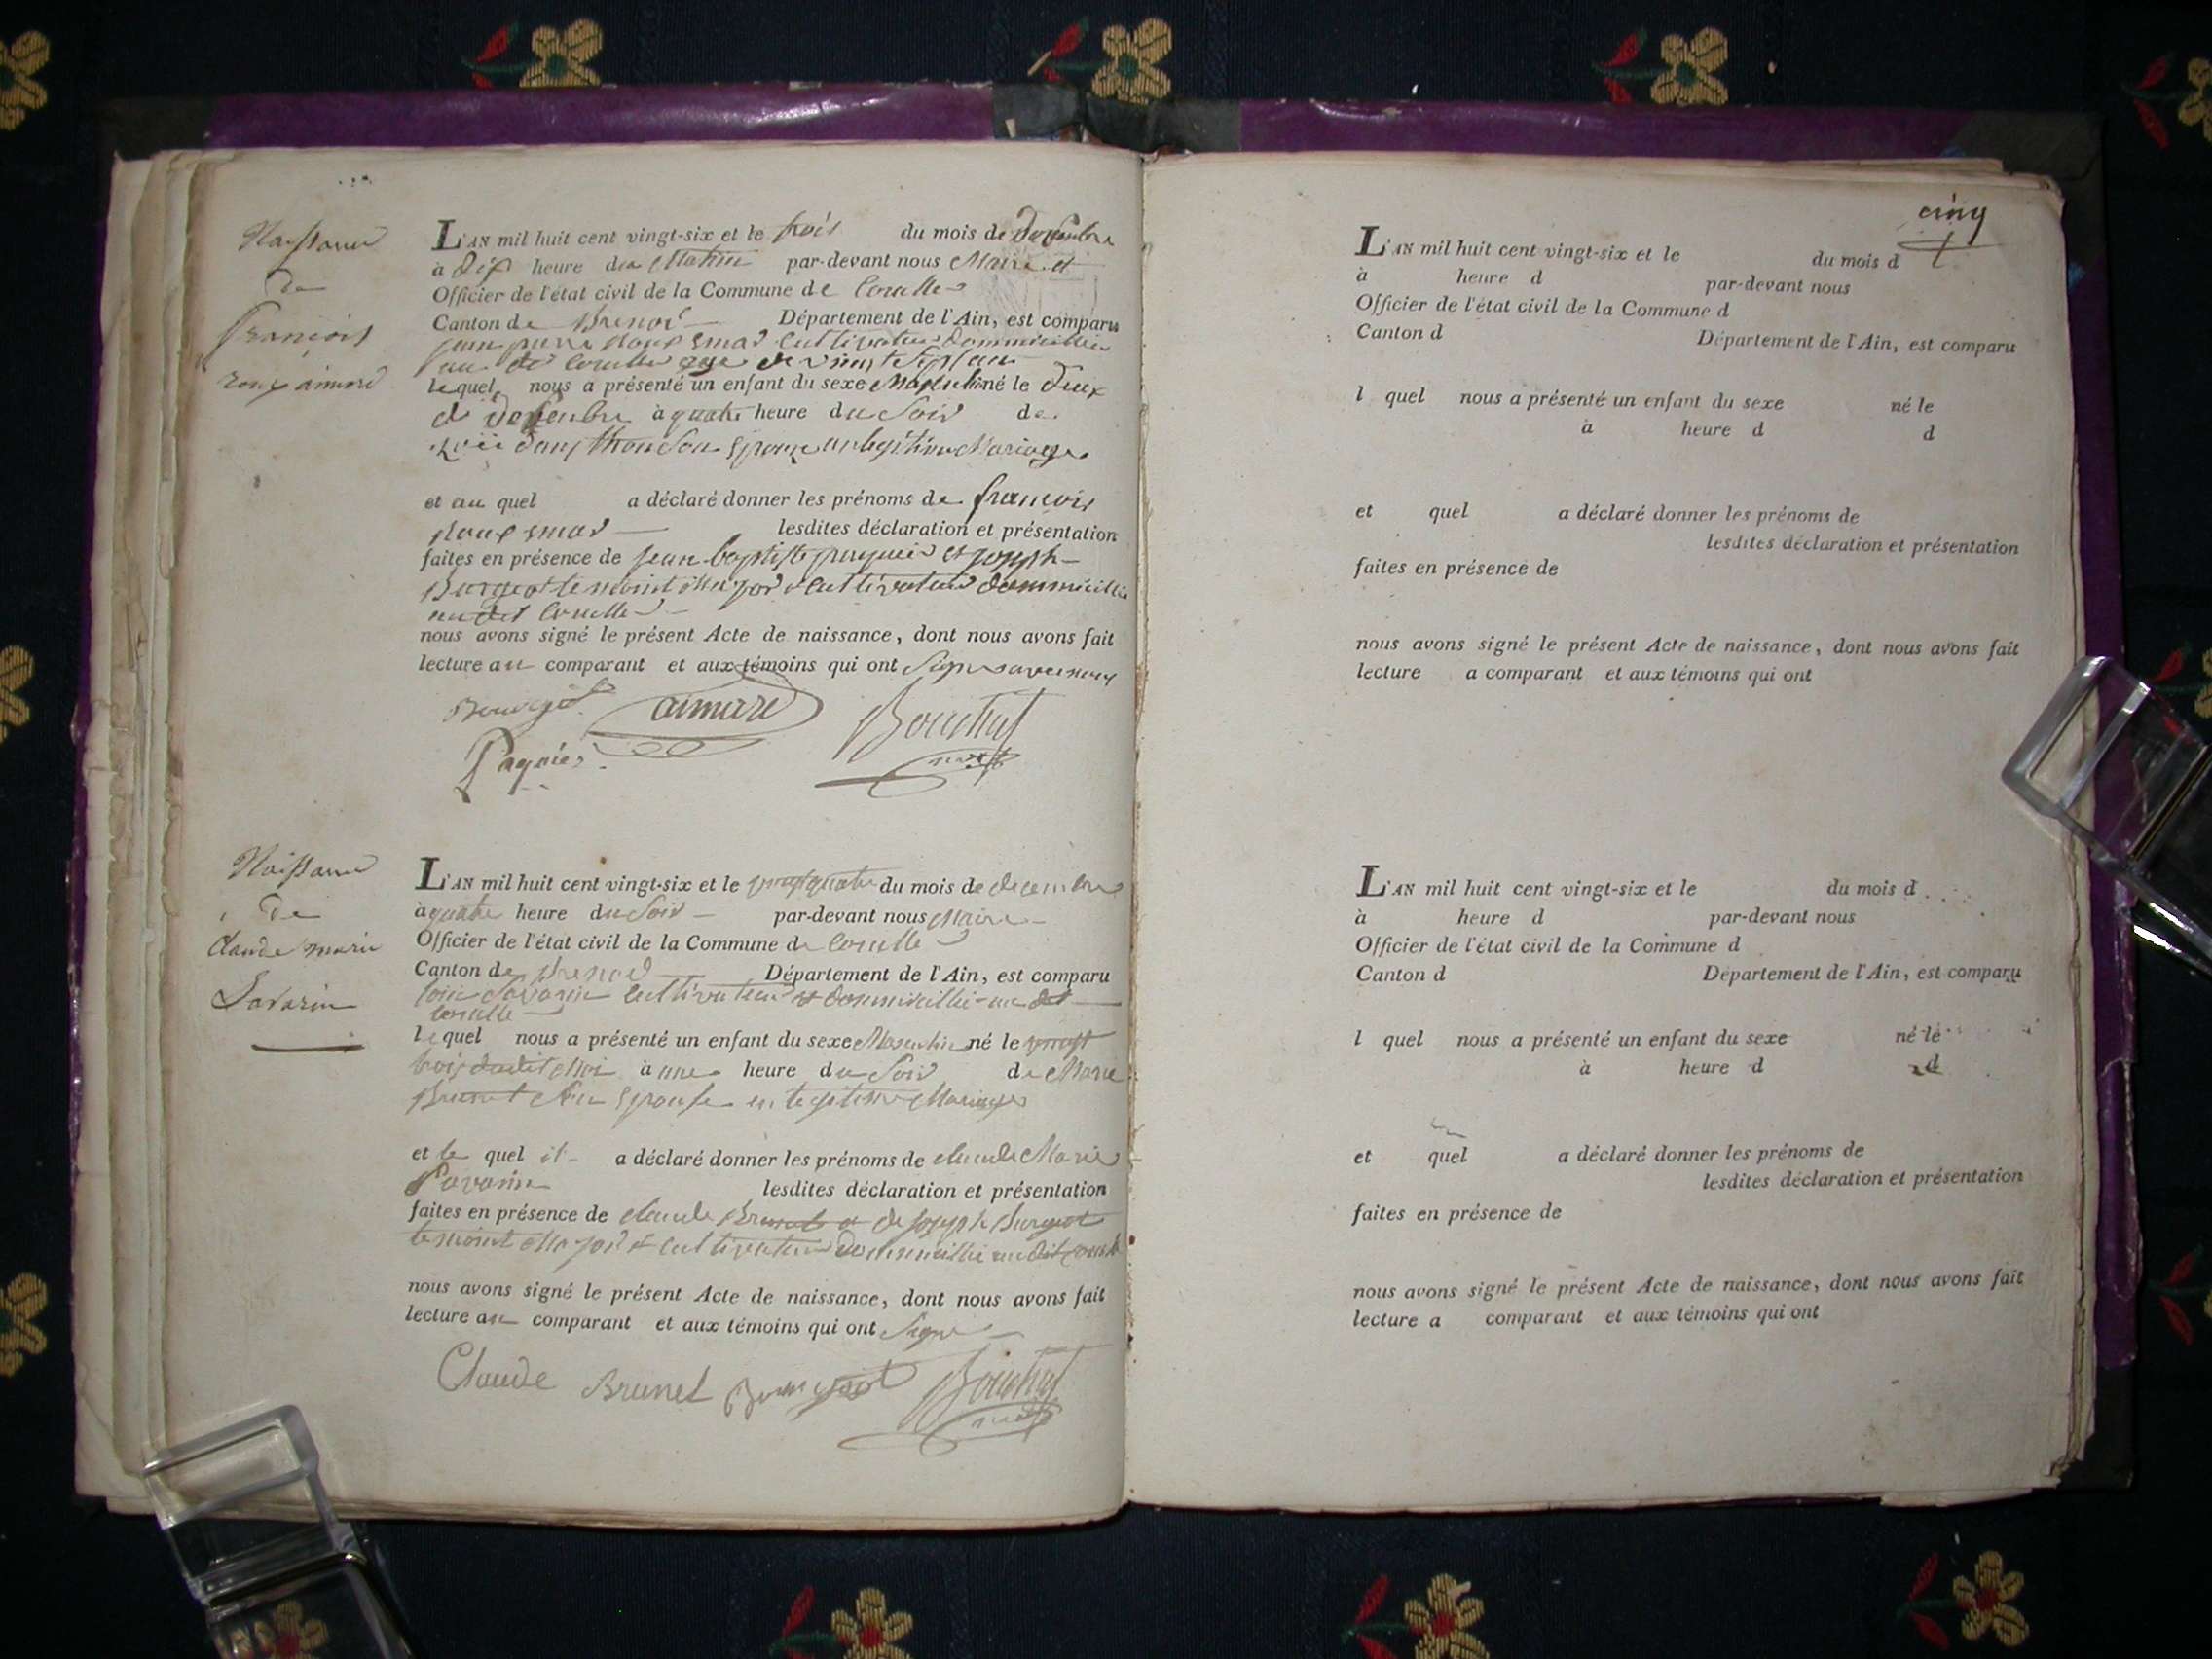 Naissance
de
François
roux aimard
L'AN mil huit cent vingt-six et le trois du mois de
à dix heure du Matin par-devant nous Maire et
Officier de l'état civil de la Commune de Corcelle
Canton de Brenod Département de l'Ain, est comparu
jean pierre cultivateur
de Corcelle age de vingt sept ans
lequel nous a présenté un enfant du sexe Masculin né le deux
de à quatre heure du Soir de
Son Epouse en legitime Mariage
et au quel a déclaré donner les prénoms de francois
lesdites déclaration et présentation
faites en présence de jean baptiste et joseph
Burgeot temoint major et cultivateur
au dit Corcelle
nous avons signé le présent Acte de naissance, dont nous avons fait
lecture au comparant et aux témoins qui ont Signe avec nous
Bourgeot aimard Bouchut
Pagnier
Naissance
de
Claude marie
Savarin
L'AN mil huit cent vingt-six et le vingt quatre du mois de decembre
à quatre heure du Soir par-devant nous Maire
Officier de l'état civil de la Commune de Corcelle
Canton de Brenod Département de l'Ain, est comparu
Savarin cultivateur et au dit
Corcelle
lequel nous a présenté un enfant du sexe Masculin né le vingt
trois dudit Moi à une heure du Soir de Marie
Brunet Son Epouse en legitime Mariage
et le quel il a déclaré donner les prénoms de claude Marie
Savarin lesdites déclaration et présentation
faites en présence de claude Brunet et de joseph Burgeot
temoint Major et cultivateur au dit
nous avons signé le présent Acte de naissance, dont nous avons fait
lecture au comparant et aux témoins qui ont Signe
Claude Brunet Bourgeot Bouchut
cinq
L'AN mil huit cent vingt-six et le du mois d
à heure d par-devant nous
Officier de l'état civil de la Commune d
Canton d Département de l'Ain, est comparu
l quel nous a présenté un enfant du sexe né le
à heure d d
et quel a déclaré donner les prénoms de
lesdites déclaration et présentation
faites en présence de
nous avons signé le présent Acte de naissance, dont nous avons fait
lecture a comparant et aux témoins qui ont
L'AN mil huit cent vingt-six et le du mois d
à heure d par-devant nous
Officier de l'état civil de la Commune d
Canton d Département de l'Ain, est comparu
l quel nous a présenté un enfant du sexe né le
à heure d d
et quel a déclaré donner les prénoms de
lesdites déclaration et présentation
faites en présence de
nous avons signé le présent Acte de naissance, dont nous avons fait
lecture a comparant et aux témoins qui ont